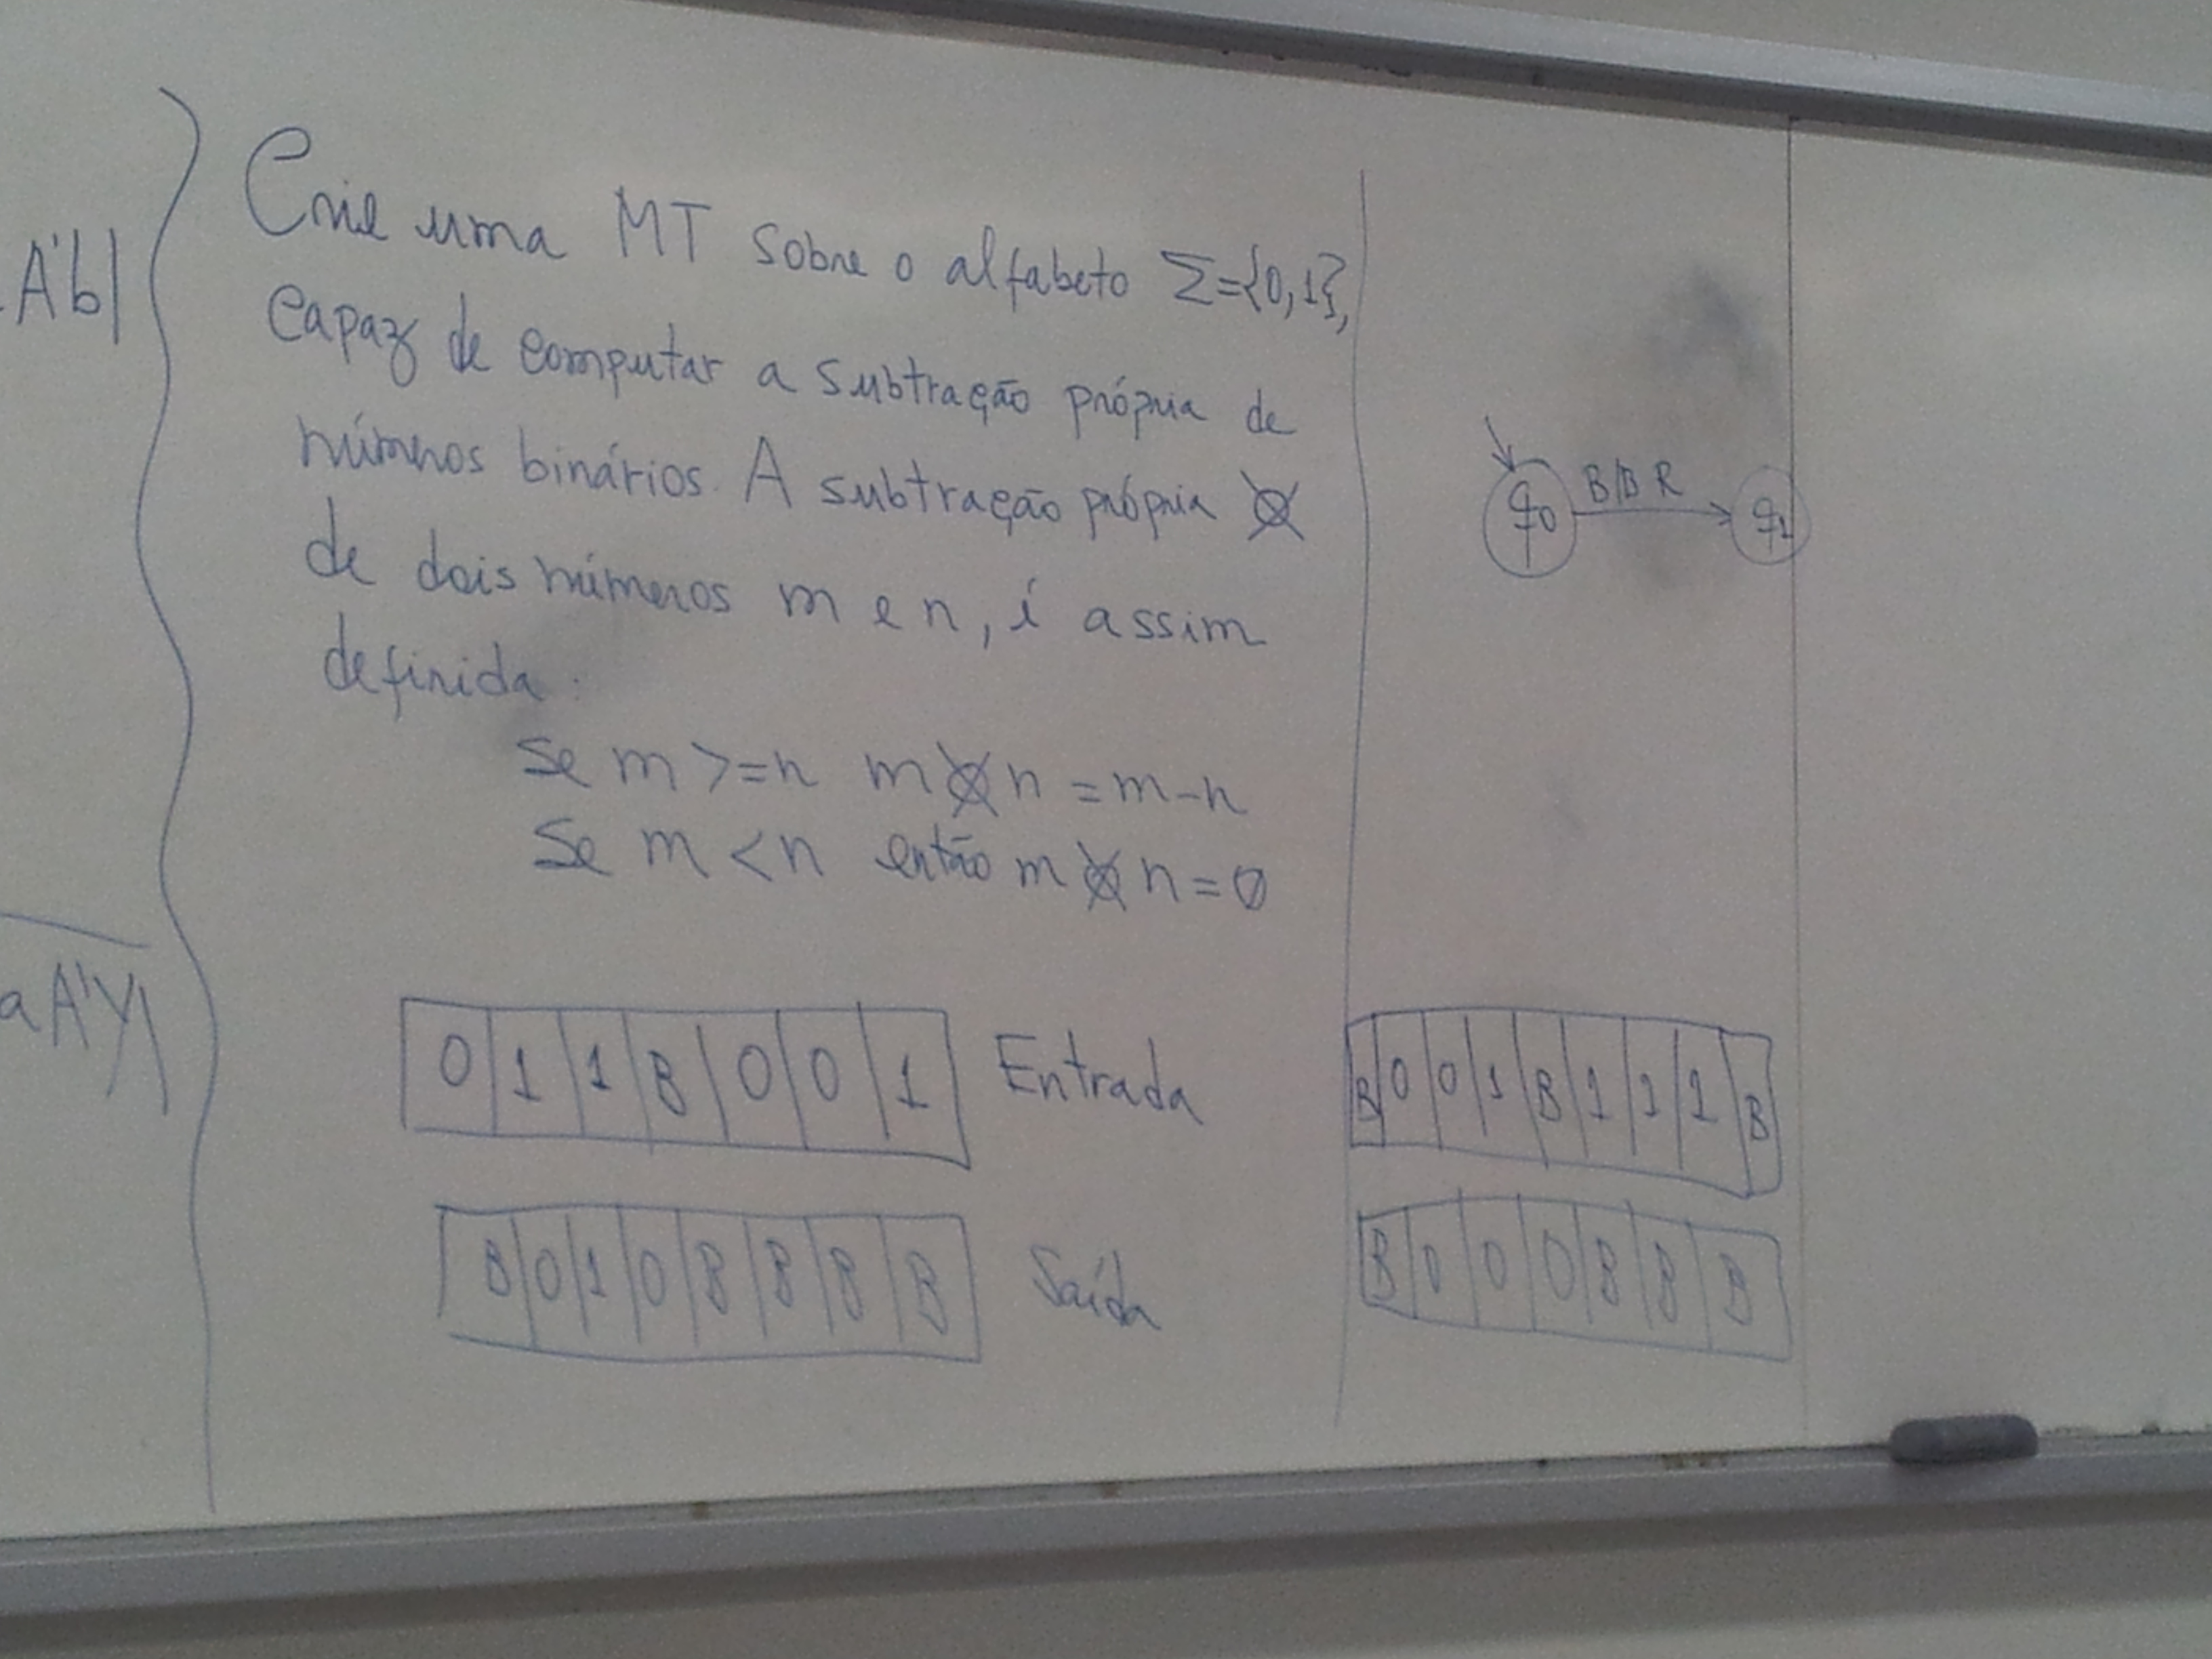 A'b|
aA'y|
Crie uma MT sobre o alfabeto Σ={0,1},
capaz de computar a subtração própria de
números binários. A subtração própria
de dois números m e n, é assim
definida:
Se m >= n m n = m-n
Se m < n então m n = 0
0 1 1 B 0 0 1 Entrada
B 0 1 0 B B B B Saída
q0 B/B R q1
B 0 0 1 B 1 1 1 B
B 0 0 0 B B B